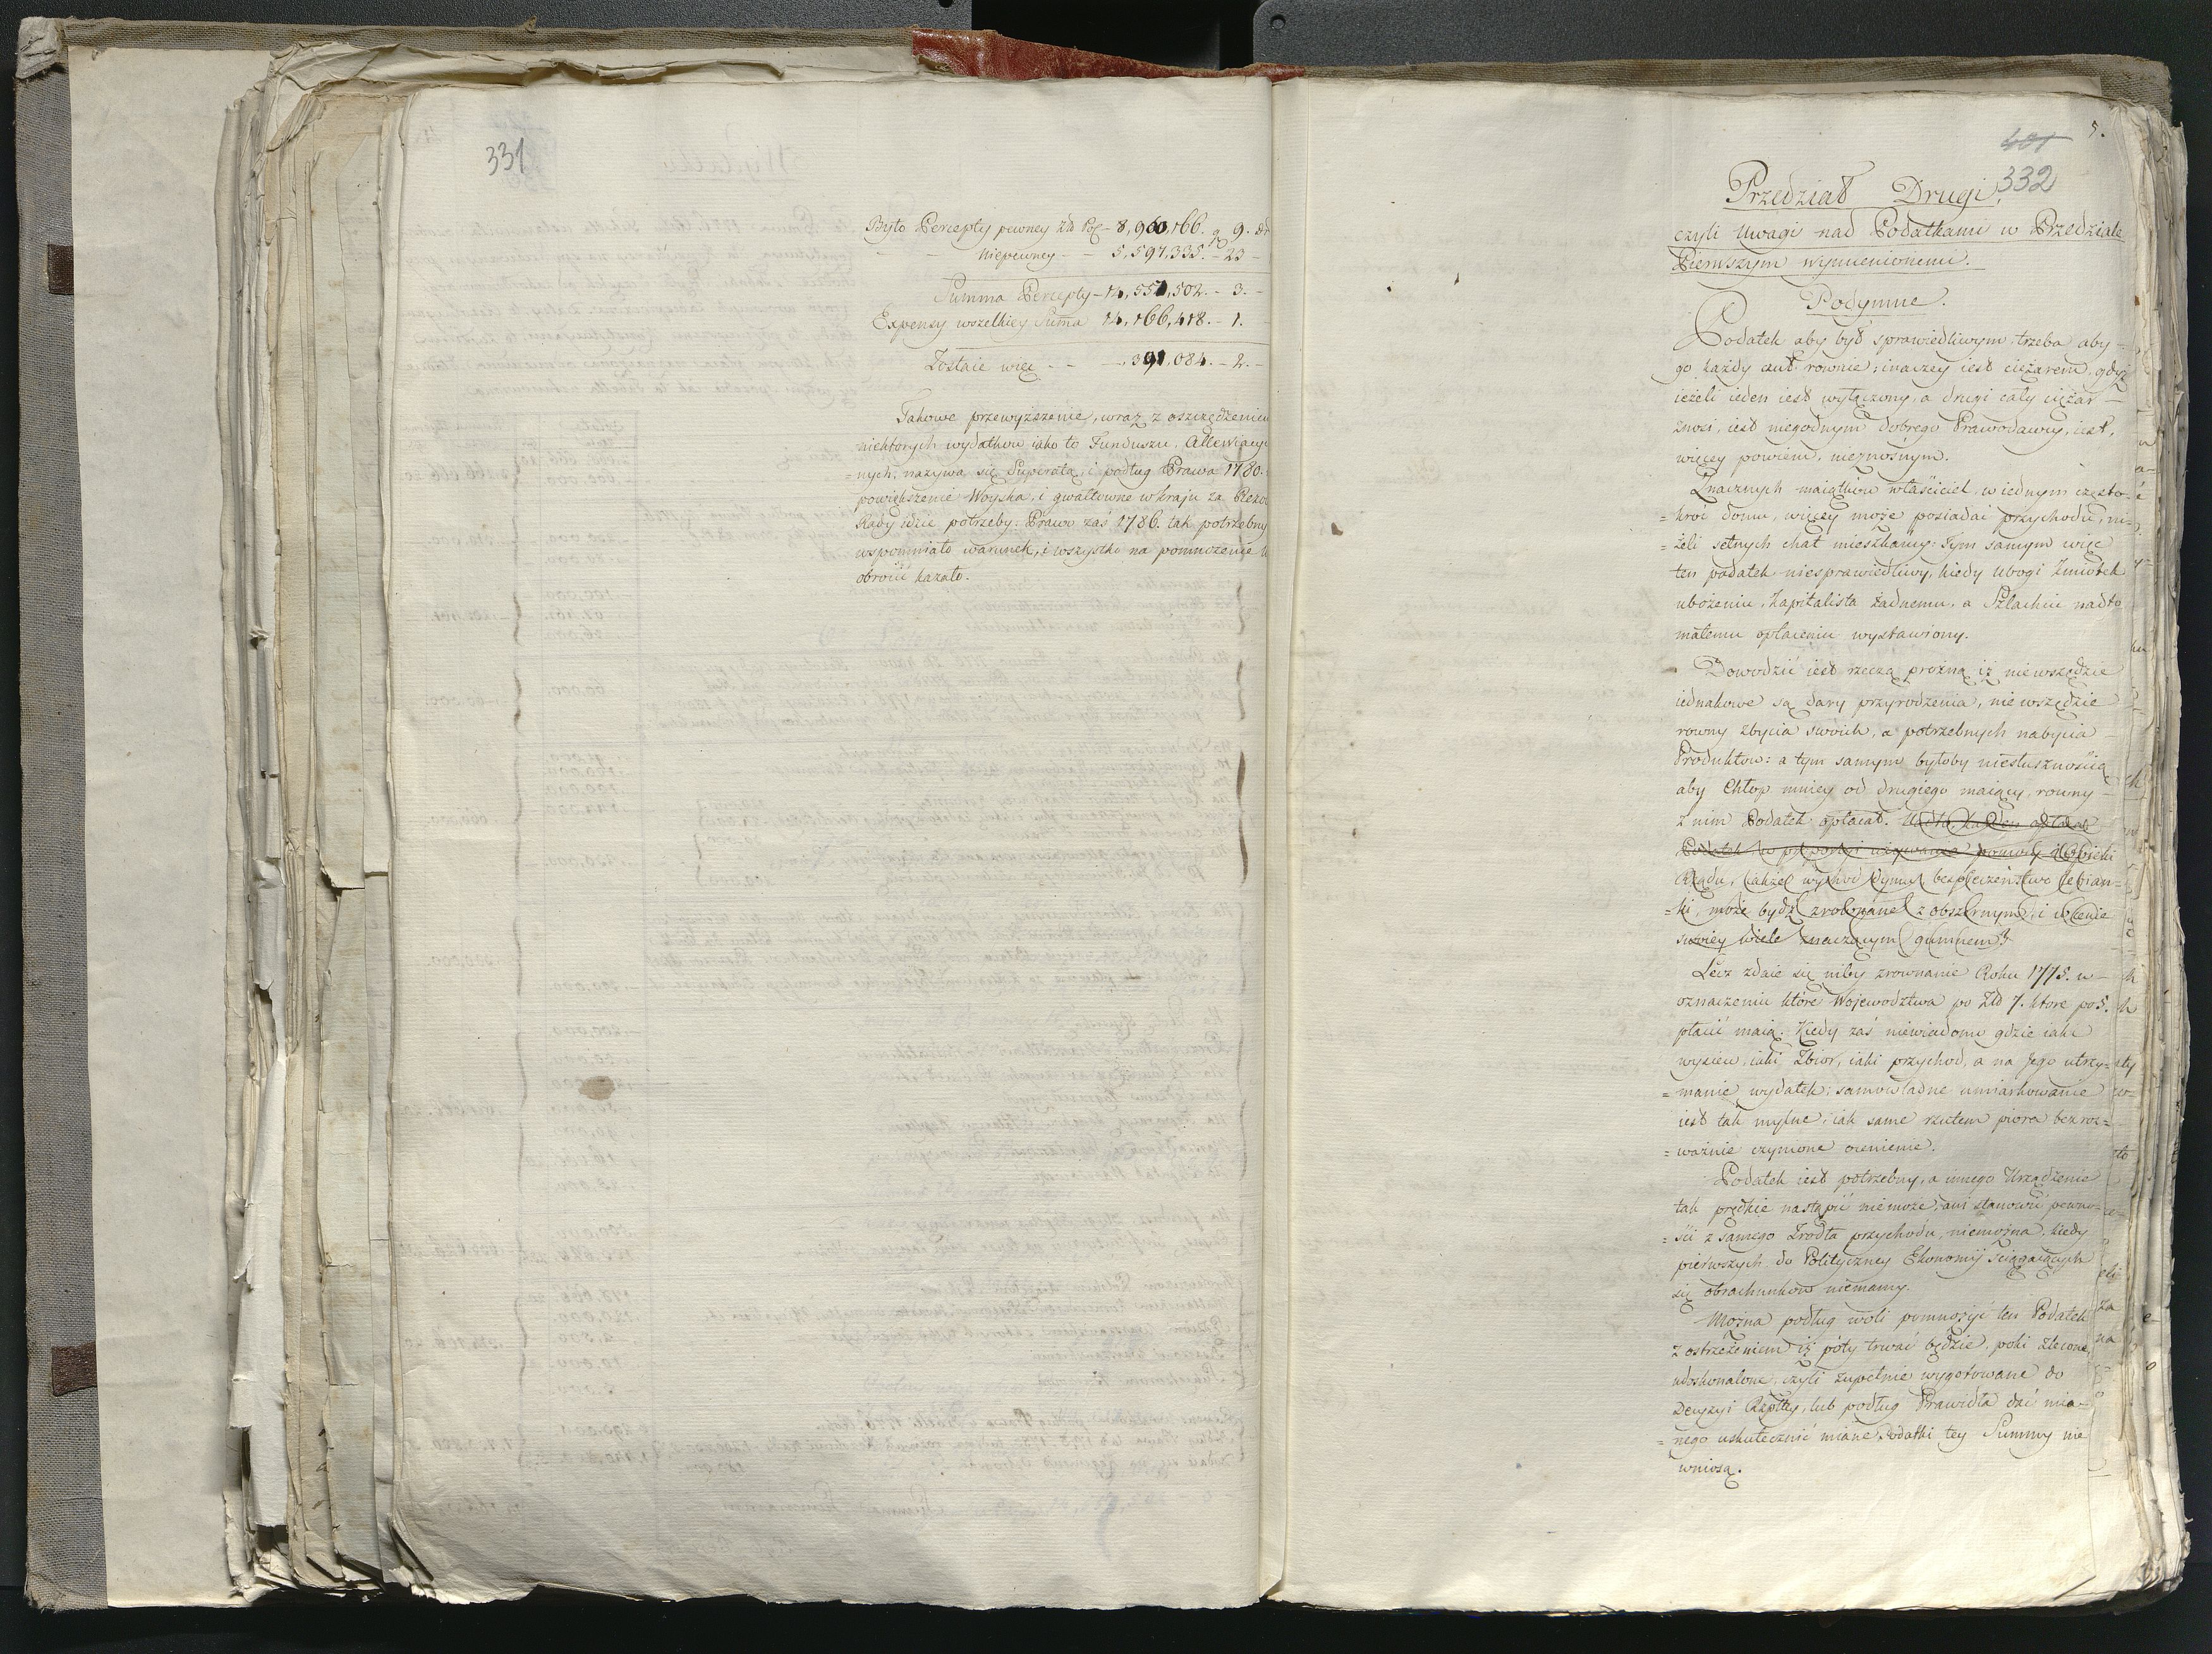 331
Było Percepty pewney Zł Pol - 8,960,166. g 9. d
- - niepewney - - 5,597,335. - 23 -
Summa Percepty - 14,557,502. - 3. -
Expensy wszelkiey Suma 14,166,418. - 1.
Zostaie więc - - 391,084. - 2. -
Takowe przewyższenie, wraz z oszczędzeniem
niektorych wydatkow iako to Funduszu, Allewiacy
=nych; nazywa się Superata, i podług Prawa 1780.
powiększenie Woyska, i gwałtowne w kraju za Rezo
Rady idzie potrzeby. Prawo zaś 1786. tak potrzebny
wspomniało warunek, i wszystko na pomnożenie
obrócić kazało.
5.
401
332
Przedział Drugi,
czyli Uwagi nad Podatkami w Przedziale
Pierwszym wymienionemi.
Podymne.
Podatek aby był sprawiedliwym, trzeba aby
go każdy czuł rownie; inaczey iest ciężarem, gdyż
ieżeli ieden iest wyłączony, a drugi cały ciężar
znosi, iest niegodnym dobrego Prawodawcy, iest,
więcey powiem, nieznośnym.
Znacznych maiątkow właściciel, w iednym często=
=kroć domu, więcey może posiadać przychodu, ni=
=żeli setnych chat mieszkańcy: tym samym więc
ten podatek niesprawiedliwy, kiedy ubogi Kmiotek
ubożeniu, Kapitalista żadnemu, a Szlachcic nadto
małemu opłaceniu wystawiony.
Dowodzić iest rzeczą prożną iż nie wszędzie
iednakowe są dary przyrodzenia, nie wszędzie
rowny zbycia swoich, a potrzebnych nabycia
Produktow: a tym samym byłoby niesłusznością
aby Chłop mniey od drugiego maiący, rowny
z nim Podatek opłacał.
Podatek w używania pomocy Opieki
Rządu, także wychod dymu, bezpieczeństwo lepian=
=ki, może bydź zrownane z obszernym, i w cenie
swoiey wiele znaczącym gumnem?
Lecz zdaie się niby zrownanie Roku 1775. w
oznaczeniu które Województwa po Zło 7. ktore po 5.
płacić maią. Kiedy zaś niewiadomo gdzie iaki
wysiew, iaki Zbior, iaki przychod, a na Jego utrzy=
=manie wydatek: samowładne umiarkowanie
iest tak mylne, iak same rzutem piora bezroz=
=ważnie czynione ocenienie.
Podatek iest potrzebny, a innego Urządzenie
tak prędkie nastąpić niemoże, ani stanowić pewno=
=ści z samego Zrodła przychodu, niemożna, kiedy
pierwszych do Polityczney Ekonomij ściągaiących
się obrachunkow niemamy.
Można podług woli pomnożyć ten Podatek
z ostrzeżeniem iż póty trwać będzie, poki zlecone,
udoskonalone, czyli zupełnie wygotowane do
Decyzyi Rzpltey, lub podług Prawidła dać mia=
=nego uskutecznić miane Podatki tey Summy nie
wniosą.